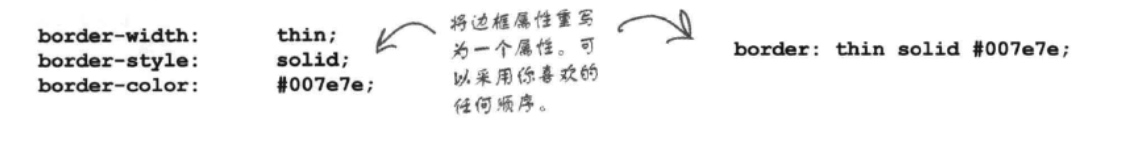 border-width: thin;
border-style: solid;
border-color: #007e7e;
将边框属性重写
为一个属性。可
以采用你喜欢的
任何顺序。
border: thin solid #007e7e;